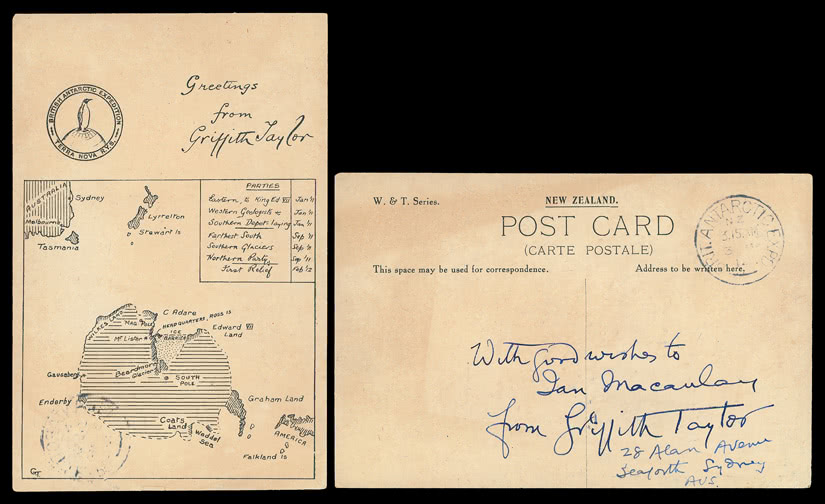 BRITISH ANTARCTIC EXPEDITION
TERRA NOVA R.Y.S.
Greetings
from
Griffith Taylor
AUSTRALIA
Sydney
Melbourne
Tasmania
Lyttelton
Stewart Is
PARTIES
Eastern, to King Ed VII Jan '11
Western Geologists Jan '11
Southern Depot-laying Jan '11
Farthest South Sep '11
Southern Glaciers Sep '11
Northern Party Sep '11
First Relief Feb '12
C Adare
HEADQUARTERS, ROSS IS
WILKES LAND
MAG POLE
ICE
BARRIER
Edward VII
Land
Mt Lister
Beardmore
Glacier
SOUTH
POLE
Gaussberg
Enderby
Graham Land
Coats
Land
Weddel
Sea
AMERICA
Falkland Is
GT
W. & T. Series.
NEW ZEALAND.
POST CARD
(CARTE POSTALE)
This space may be used for correspondence.
Address to be written here.
BRIT. ANTARCTIC EXPD
With good wishes to
Ian Macaulay
from Griffith Taylor
28 Alan Avenue
Seaforth Sydney
AUS.